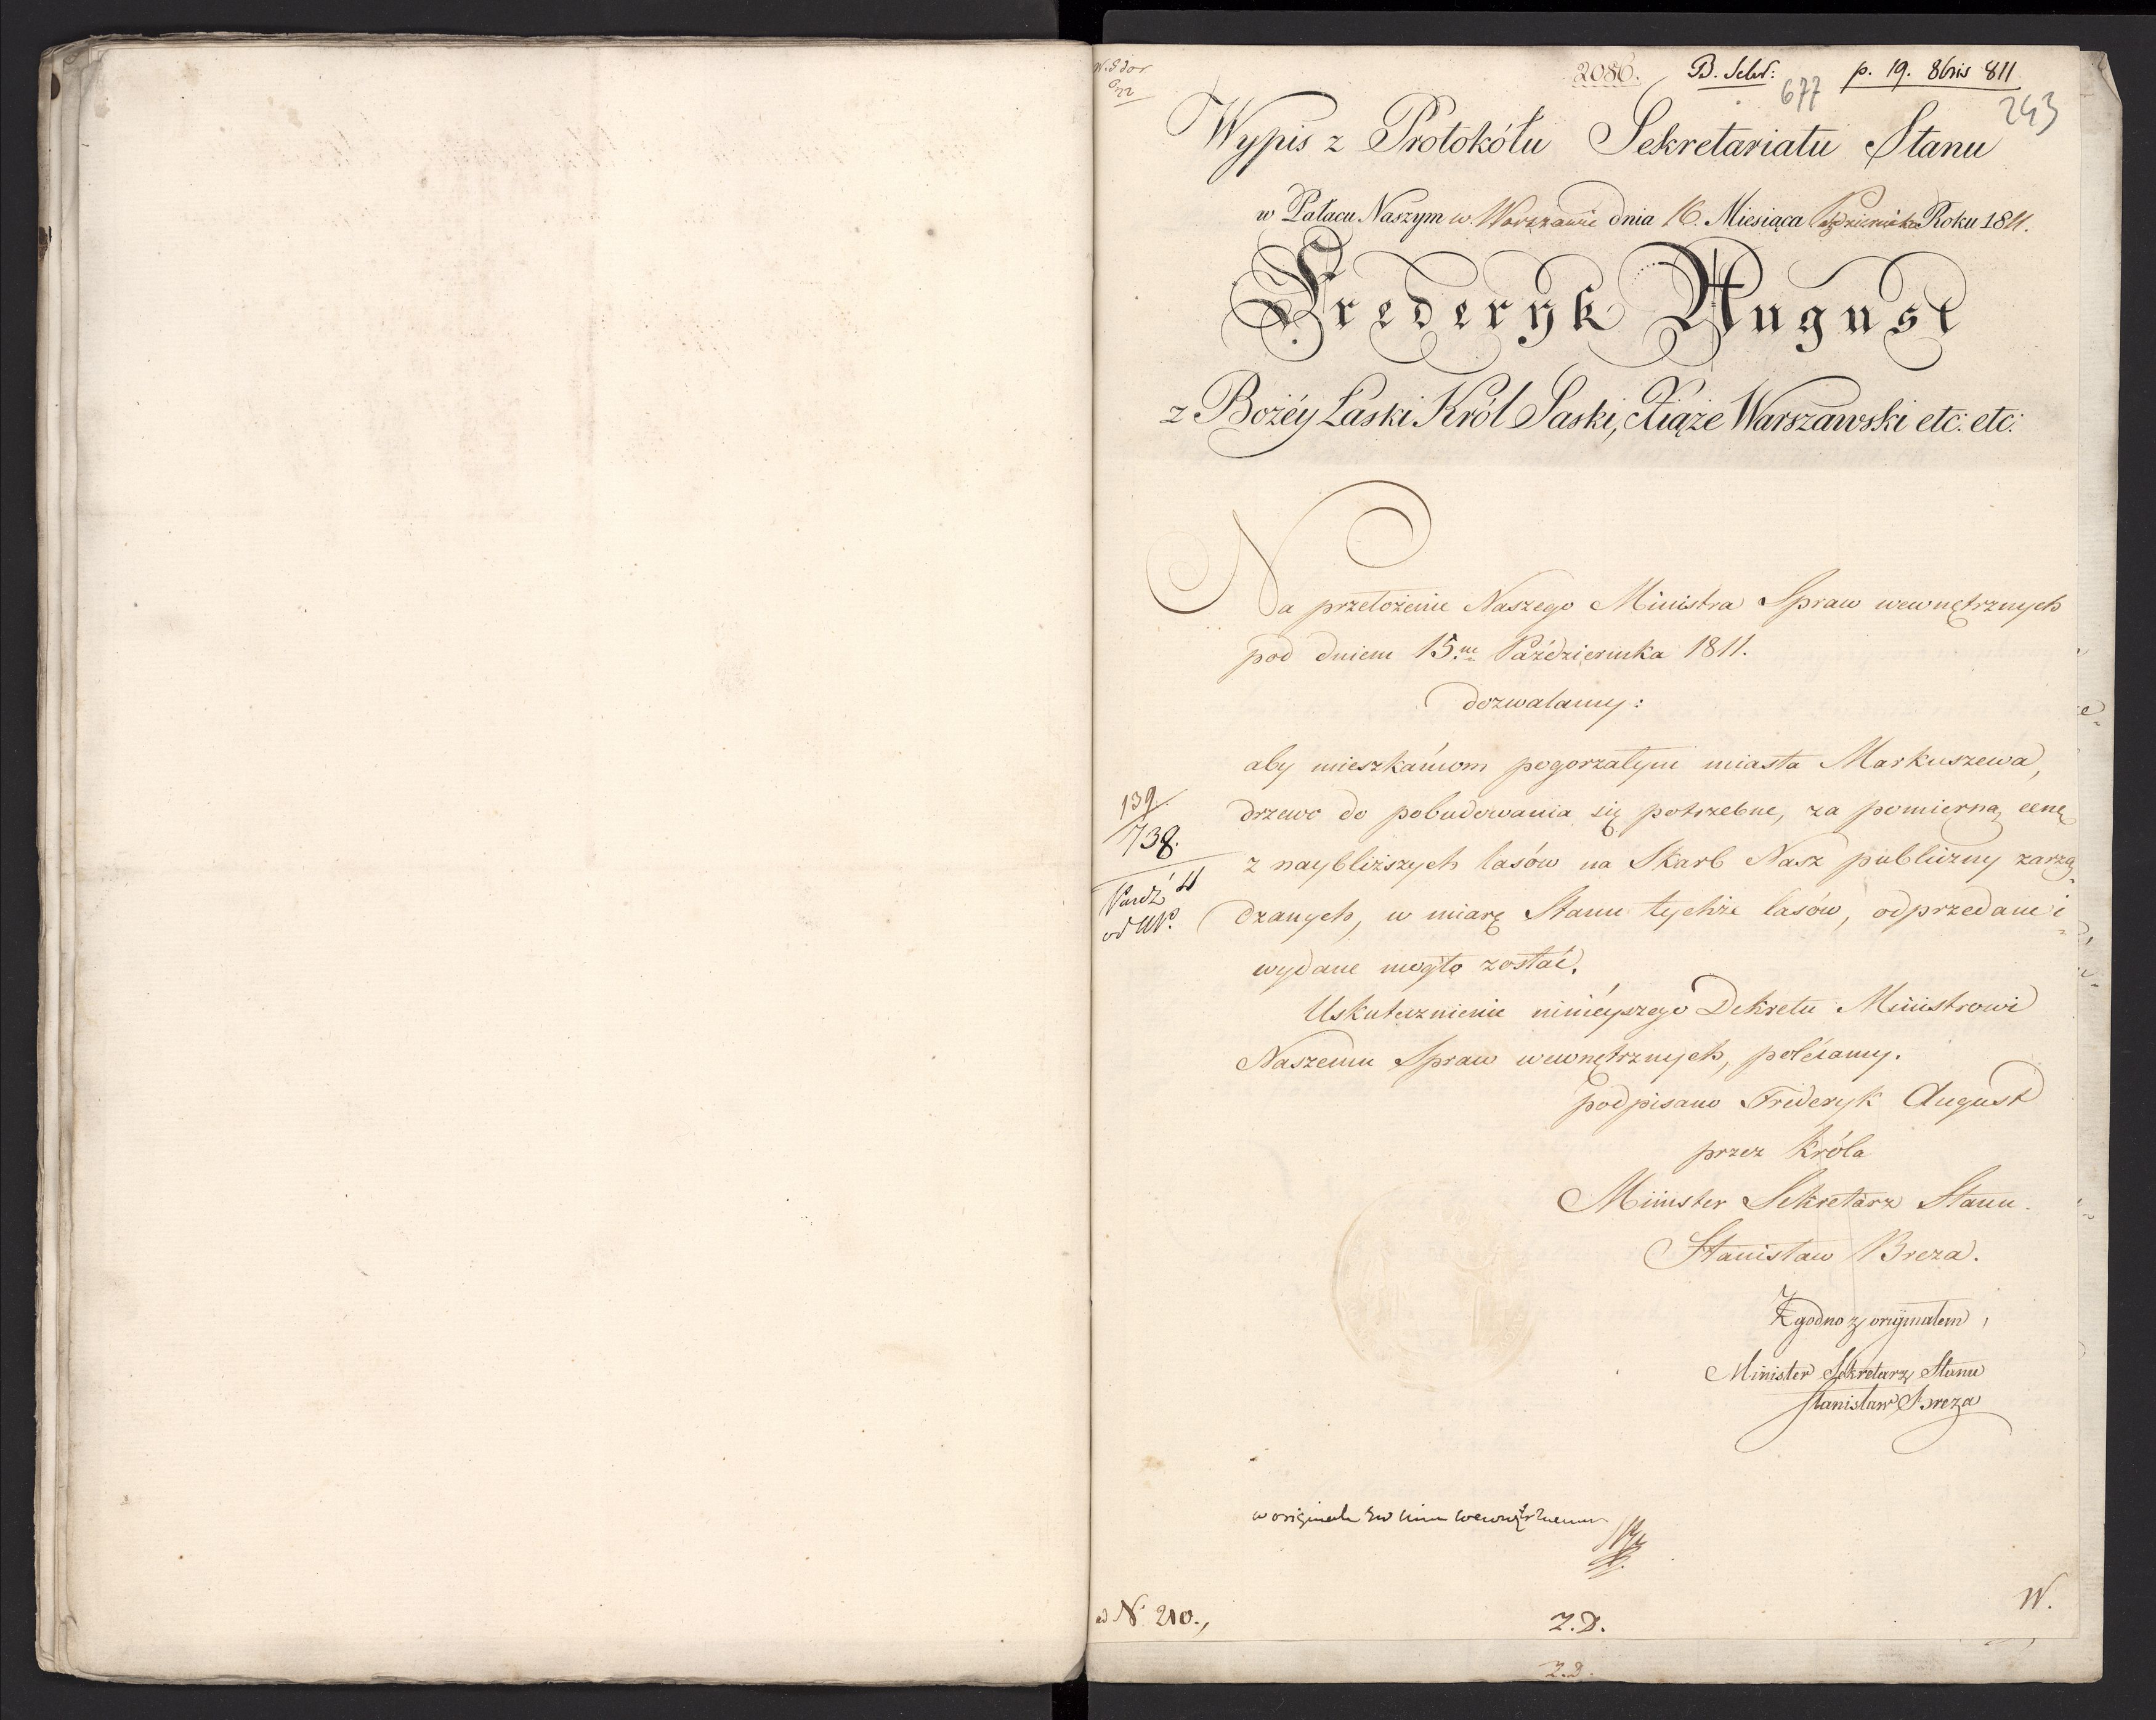 2086. B. Sekr: p. 19. 8bris 811
677
243
Wypis z Protokółu Sekretariatu Stanu
w Pałacu Naszym w Warszawie dnia 16. Miesiąca Października Roku 1811.
Frederyk August
z Bożéy Łaski Król Saski, Xiąże Warszawski etc: etc:
Na przełożenie Naszego Ministra Spraw wewnętrznych
pod dniem 15.m Października 1811.
dozwalamy:
aby mieszkańcom pogorzałym miasta Markuszewa,
drzewo do pobudowania się potrzebne, za pomierną cenę
z naybliższych lasów na Skarb Nasz publiczny zarzą-
dzanych, w miarę Stanu tychże lasów, odprzedane i
wydane mogło zostać.
Uskutecznienie ninieyszego Dekretu Ministrowi
Naszemu Spraw wewnętrznych, polécamy.
podpisano Frideryk August
przez Króla
Minister Sekretarz Stanu.
Stanisław Breza.
Zgodno z oryginałem,
Minister Sekretarz Stanu
Stanisław Breza
139
738.
w originale
ad N. 210.,
Z.D.
W.
Z.D.